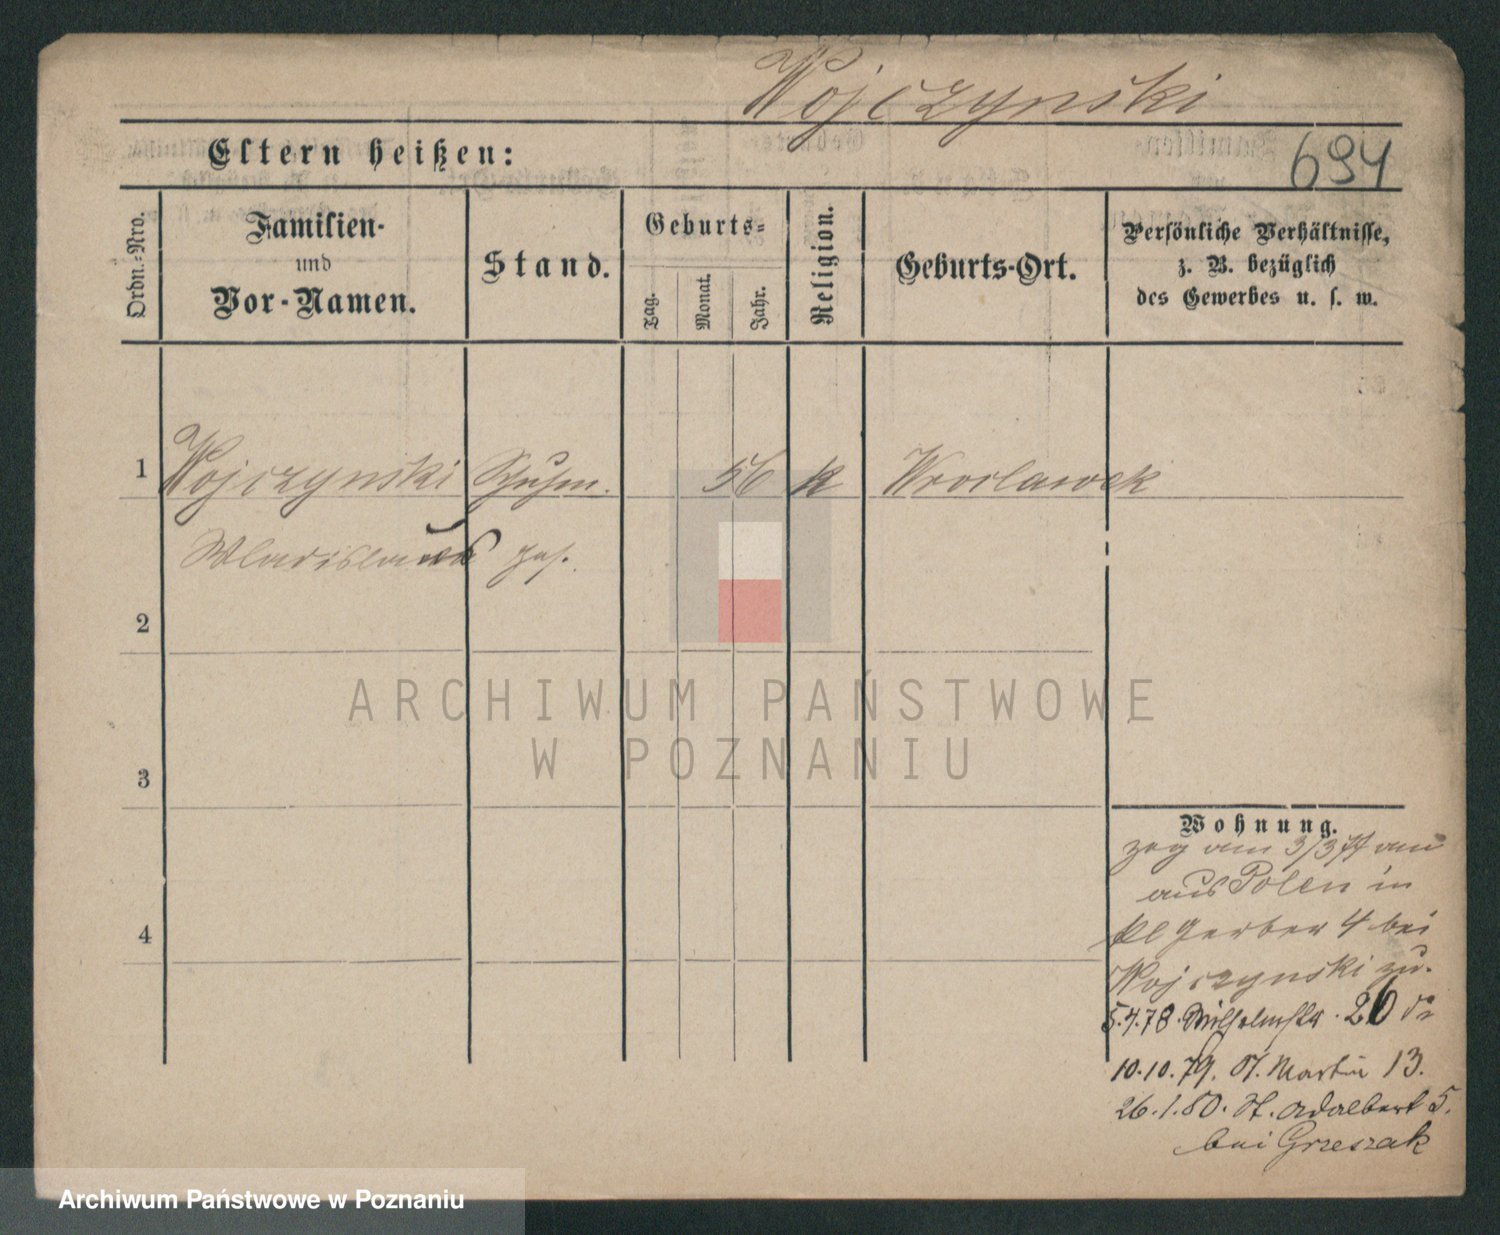 Wojczynski
Eltern heißen:
694
Ordn.-Nro.
Familien-
und
Vor-Namen.
Stand.
Geburts-
Tag.
Monat.
Jahr.
Religion.
Geburts-Ort.
Persönliche Verhältnisse,
z. B. bezüglich
des Gewerbes u. s. w.
1 Wojczynski Schuhm. 56 k Wroclawek
Wladislaus ges.
2
3
4
Wohnung.
zog am 3/3 77 an
aus Polen in
Kl Gerber 4 bei
Wojczynski zu.
5.4.78. Wilhelmstr. 26
10.10.79. St. Martin 13.
26.1.80. St. Adalbert 5.
bei Grzeszak
ARCHIWUM PAŃSTWOWE
W POZNANIU
Archiwum Państwowe w Poznaniu